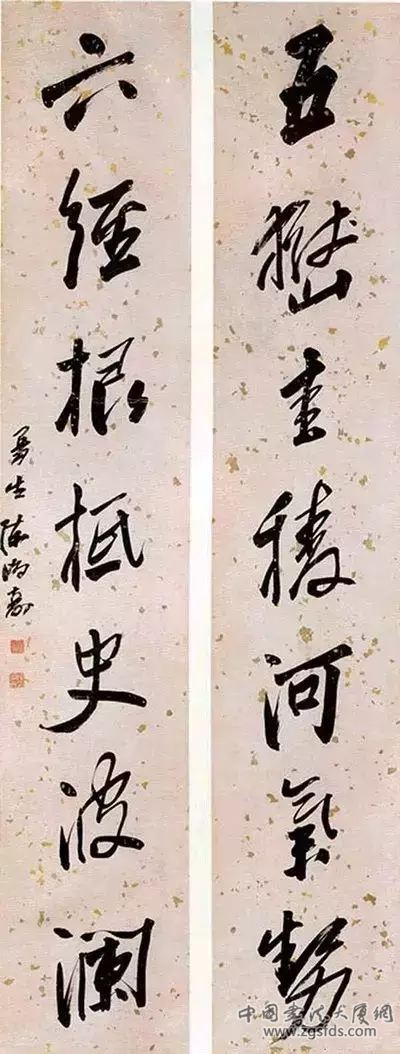 五嶽圭稜河氣勢
六經根柢史波瀾
曼生陳鴻壽
中國書法大厦網
www.zgsfds.com